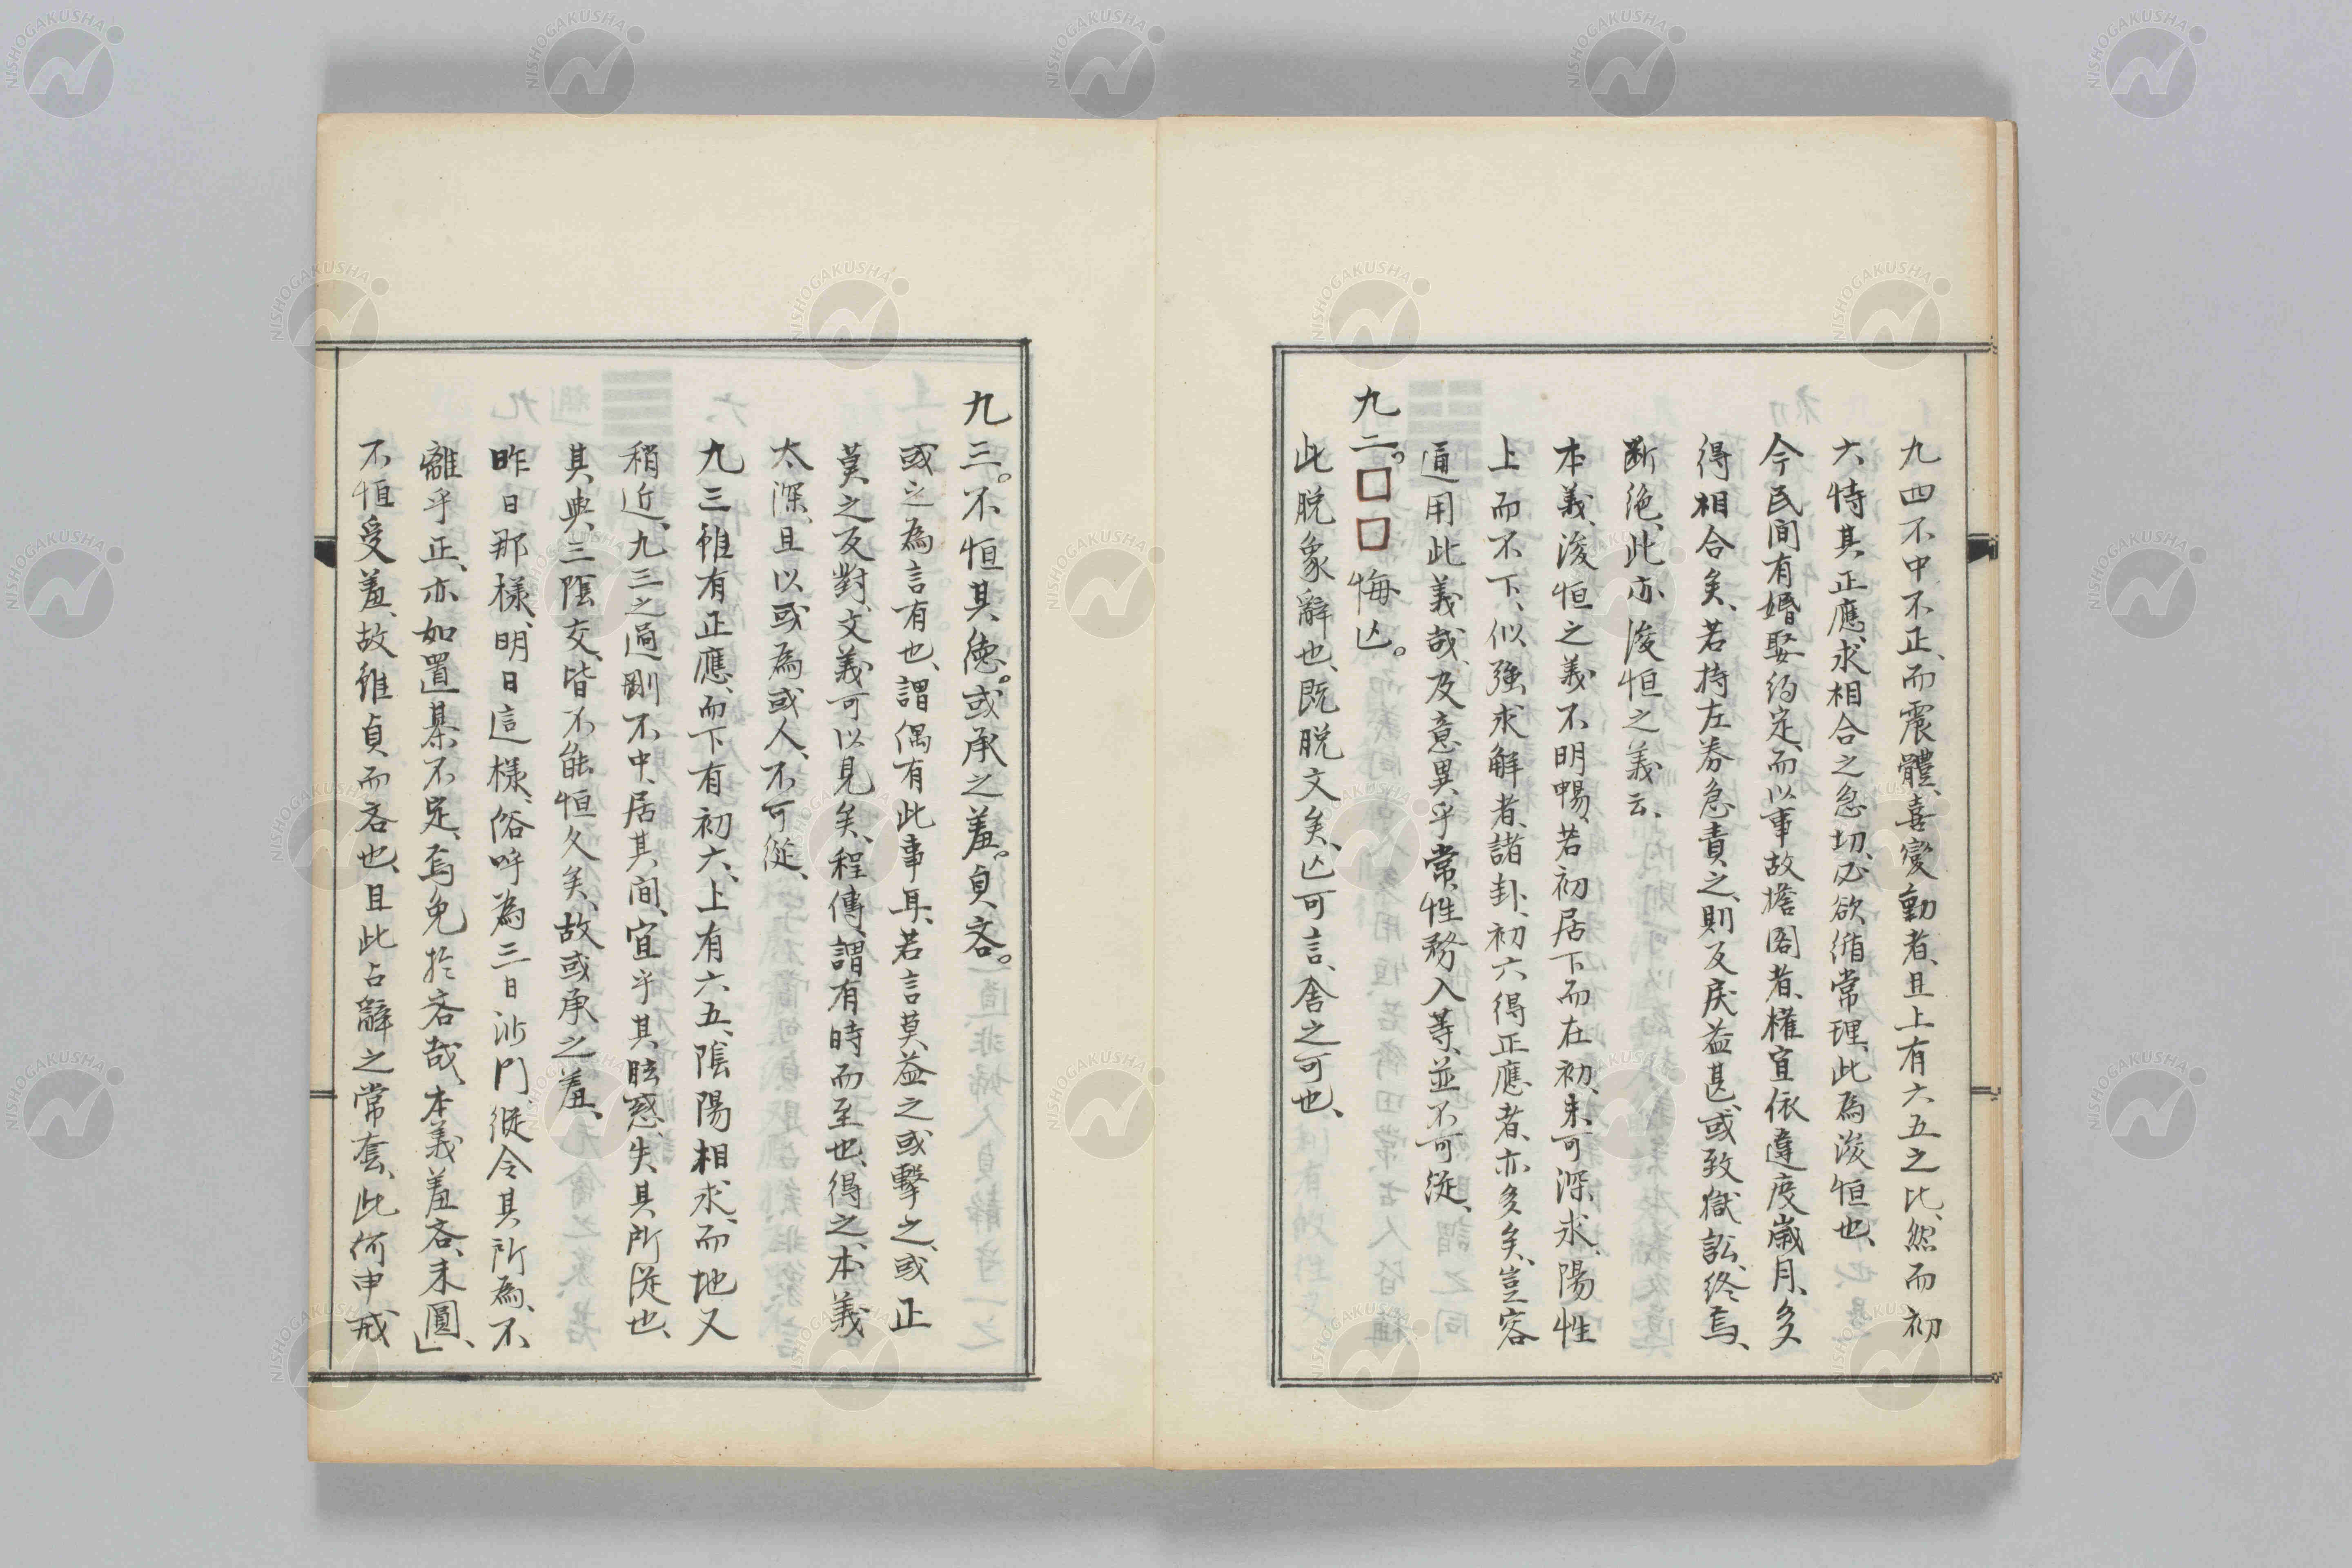 九四不中不正、而震體、喜變動者、且上有六五之比、然而初
六恃其正應、求相合之急切、必欲循常理、此為浚恒也、
今民間有婚娶約定、而以事故擔閣者、權宜依違度歲月、多
得相合矣、若持左券急責之、則反戾益甚、或致獄訟、終焉、
断絶、此亦浚恒之義云、
本義、浚恒之義不明暢、若初居下而在初、未可深求、陽性
上而不下、似強求解者、諸卦、初六得正應者、亦多矣、豈容
通用此義哉、及意異乎常、性務入等、並不可從、
九二。□□悔亾。
此脱象辭也、既脱文矣、亾可言、舍之可也、
九三。不恒其德。或承之羞。貞吝。
或之為言有也、謂偶有此事耳、若言莫益之或擊之、或正
莫之反對、文義可以見矣、程傳、謂有時而至也、得之、本義
太深、且以或為或人、不可從、
九三雖有正應、而下有初六、上有六五、陰陽相求、而地又
稍近、九三之過剛不中、居其間、宜乎其眩惑、失其所從也、
其與三陰交、皆不能恒久矣、故或承之羞、
昨日那樣、明日這樣、俗呼為三日沙門、縱令其所為、不
離乎正、亦如置棊不定、焉免於吝哉、本義羞吝、未圓、」
不恒受羞、故雖貞而吝也、且此占辭之常套、此何申戒
NISHOGAKUSHA